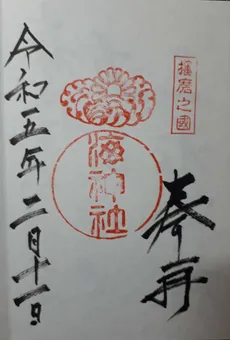 播磨之國
奉拜
海神社
令和五年二月十一日